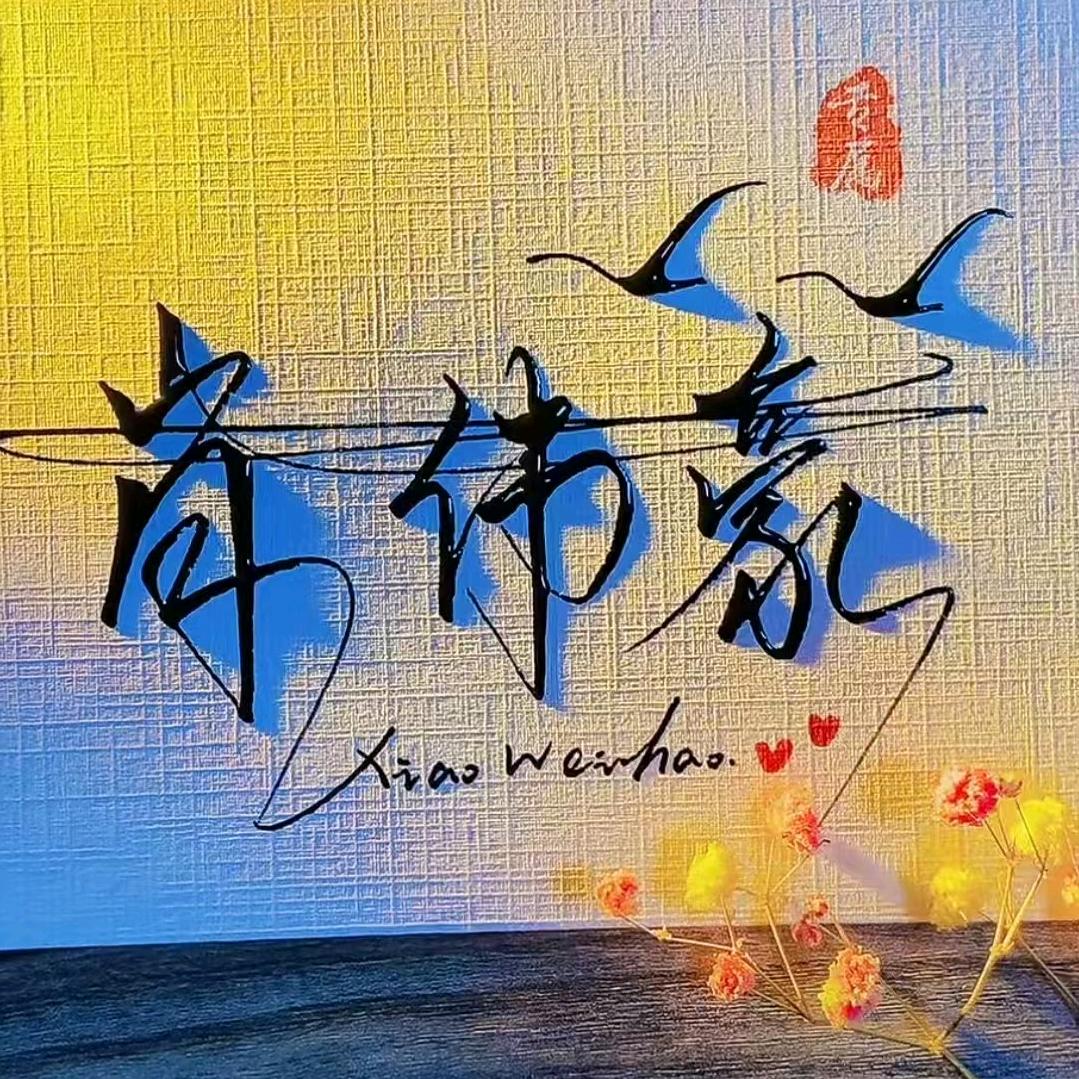 肖伟豪
Xiao Weihao.